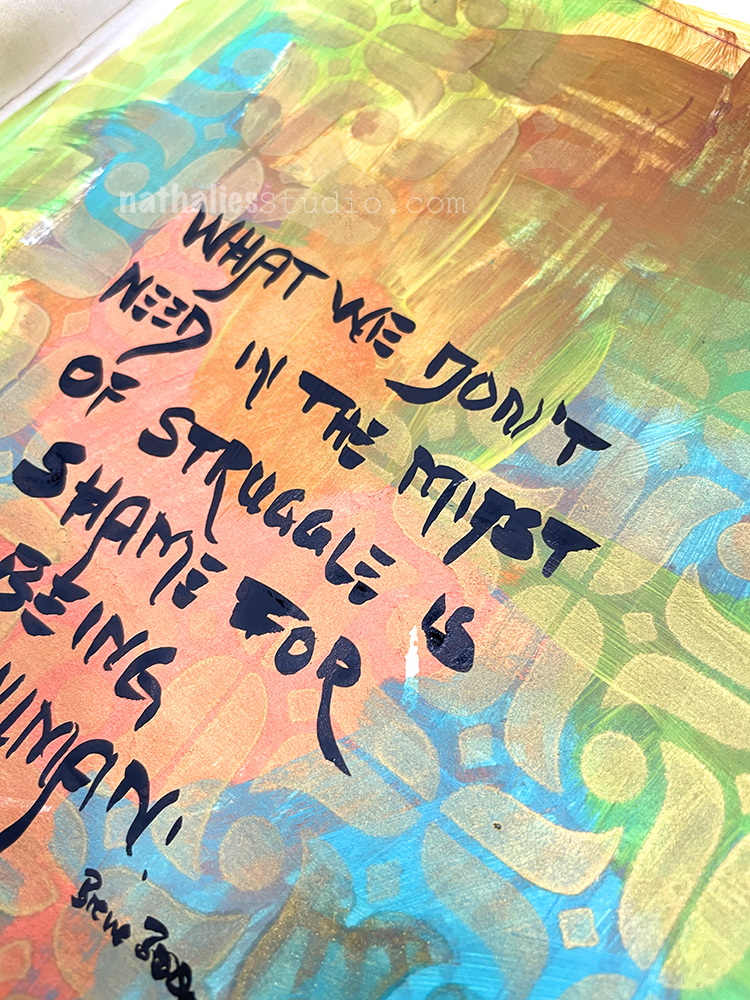 nathaliesstudio.com
WHAT WE DON'T
NEED IN THE MIDST
OF STRUGGLE IS
SHAME FOR
BEING
HUMAN.